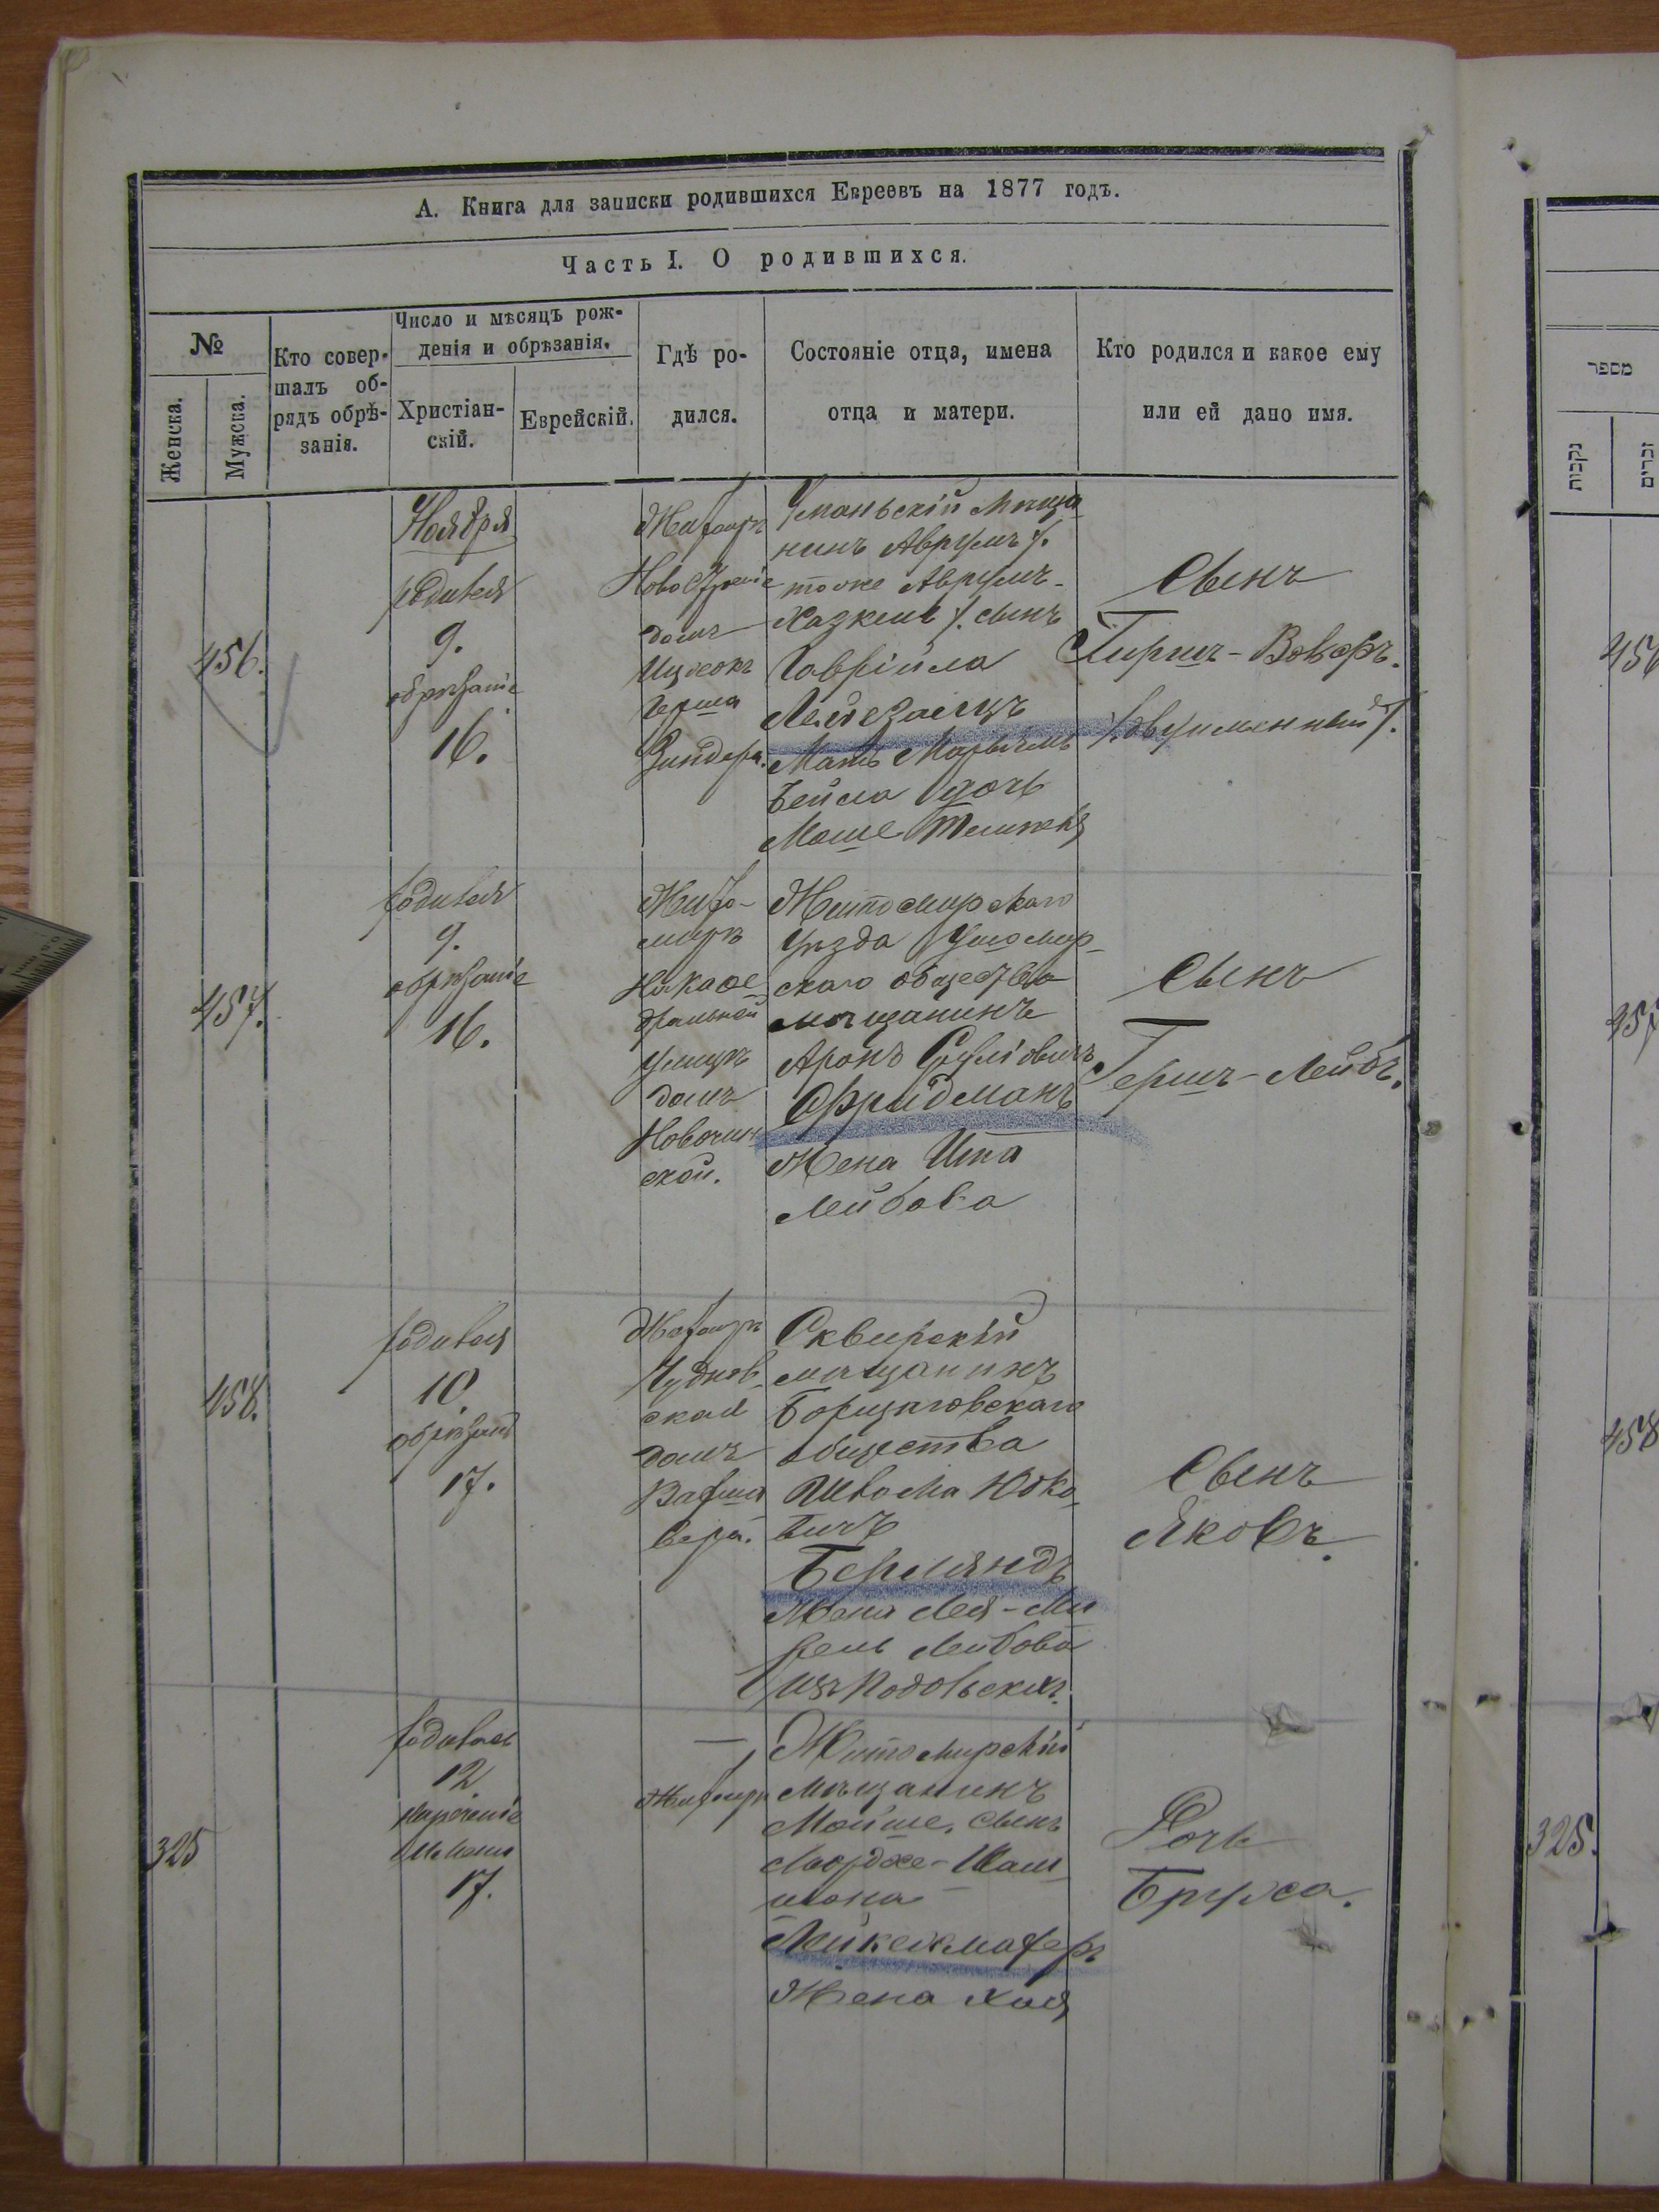 А. Книга для записки родившихся Евреевъ на 1877 годъ.
Часть I. О родившихся.
№
Женска.
Мужска.
Кто совер-
шалъ об-
рядъ обрѣ-
занія.
Число и мѣсяцъ рож-
денія и обрѣзанія.
Христіан-
скій.
Еврейскій.
Гдѣ ро-
дился.
Состояніе отца, имена
отца и матери.
Кто родился и какое ему
или ей дано имя.
456.
Ноября
родился
9.
обрѣзаніе
16.
Житомиръ
домъ
Ицкокъ
Герша
Зиндера.
Уманьскій мѣща
нинъ Аврумъ /.
тоже Аврумъ-
Хазкель /. сынъ
Гаврійла
Мать
Бейла дочь
Моше
Сынъ
Гиршъ-Вовъ
/. двуименный /.
457.
родился
9.
обрѣзаніе
16.
Жито-
миръ
На каѳе
дральной
улицѣ
домъ
Житомирскаго
уѣзда Ушомир-
скаго общества
мѣщанинъ
Аронъ
Фридманъ
Жена Ита
Лейбова
Сынъ
Гершъ-Лейбъ.
458.
родился
10.
обрѣзаніе
17.
Житомиръ
Чуднов-
ская
домъ
Сквирскій
мѣщанинъ
общества
Берляндъ
Жена Лея-Ми
рель Лейбова
изъ Подольскихъ.
Сынъ
Яковъ.
325
родилась
12
нареченіе
имени
17.
—
Житомиръ
Житомирскій
мѣщанинъ
Мойше, сынъ
Мордхе-Шам
шона
Лейкехмахеръ
Жена Хая
Дочь
Бруха.
מספר
נקבות
זכרים
456
457
458
325.